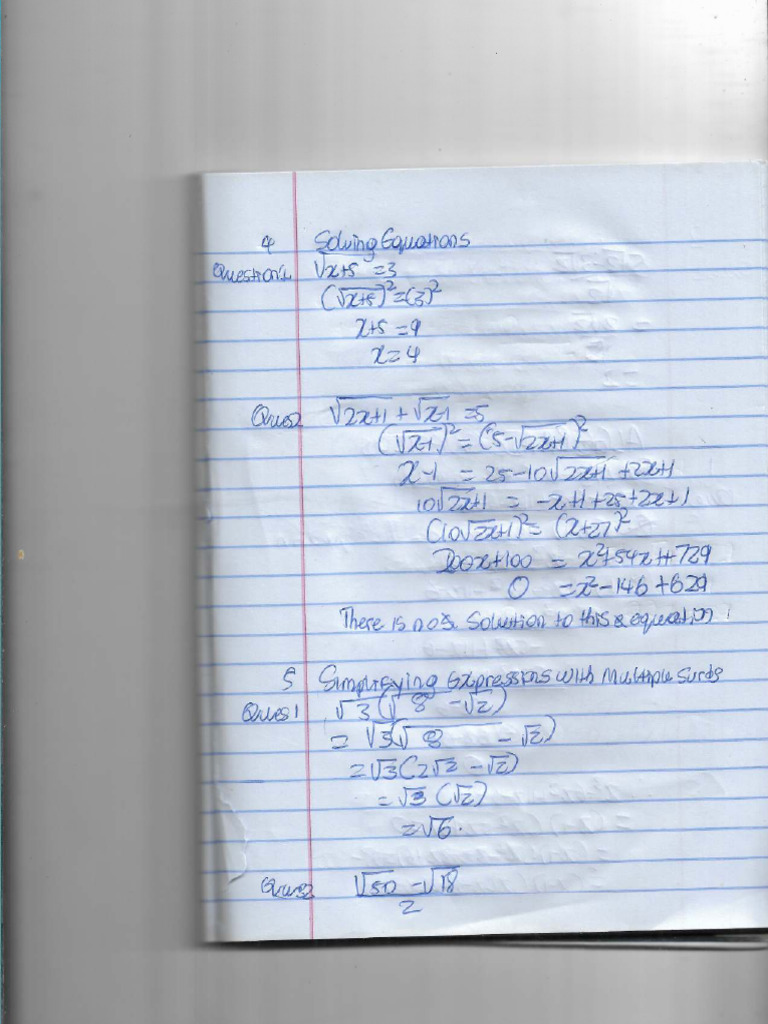 4 Solving Equations
Question 1 √x+5 = 3
(√x+5)² = (3)²
x+5 = 9
x = 4
Ques2 √2x+1 + √x-1 = 5
(√x-1)² = (5-√2x+1)²
x-1 = 25-10√2x+1 + 2x+1
10√2x+1 = -x+1+25+2x+1
(10√2x+1)² = (x+27)²
200x+100 = x²+54x+729
0 = x²-146+629
There is no solution to this equation.
5 Simplifying Expressions with Multiple Surds
Ques 1 √3(√8 - √2)
= √3(√8 - √2)
= √3(2√2 - √2)
= √3(√2)
= √6.
Ques2 √50 - √18
2